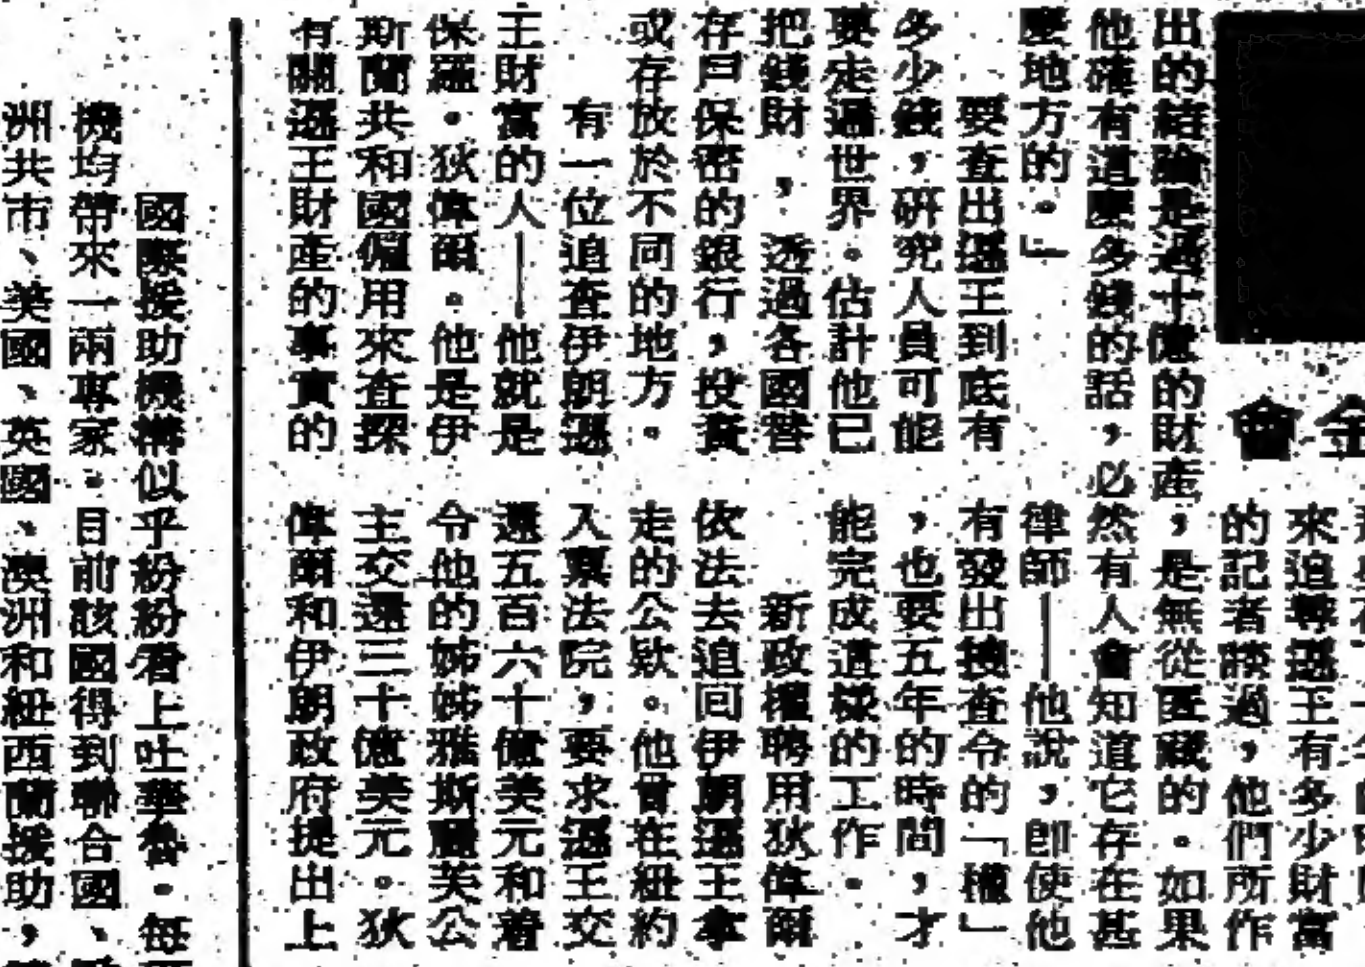 金會
來追尋遜王有多少財富
的記者談過，他們所作
出的結論是過十億的財產，是無從匿藏的。如果
他確有這麼多錢的話，必然有人會知道它存在甚
麼地方的。」
要查出遜王到底有
多少錢，研究人員可能
要走遍世界。估計他已
把錢財，透過各國替
存戶保密的銀行，投資
或存放於不同的地方。
有一位追查伊朗遜
王財富的人——他就是
保羅。狄偉爾。他是伊
斯蘭共和國僱用來查探
有關遜王財產的事實的
律師——他說，即使他
有發出搜查令的「權」
，也要五年的時間，才
能完成這樣的工作。
新政權聘用狄偉爾
依法去追回伊朗遜王拿
走的公款。他曾在紐約
入稟法院，要求遜王交
還五百六十億美元和着
令他的姊姊雅斯麗芙公
主交還三十億美元。狄
偉爾和伊朗政府提出上
國際援助機構似乎紛紛看上吐華魯。每
機均帶來一兩專家。目前該國得到聯合國、
洲共市、美國、英國、澳洲和紐西蘭援助，